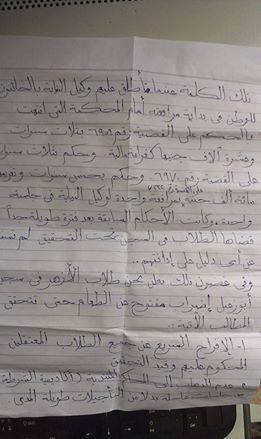 تلك الكلمة عندما أطلق عليهم وكيل النيابة بالخائنين
للوطن في بداية مرافعته أمام المحكمة التي انتهت
بالحكم على القضية رقم بثلاث سنوات
وعشرة آلاف جنيها كغرامة مالية وحكم بثلاث سنوات
على القضية رقم وحكم بخمس سنوات
مائة ألف جنيه بمرافعة واحدة لوكيل النيابة في جلسة
واحدة. وكانت الأحكام السابقة بعد فترة طويلة جداً
قضاها الطلاب في السجن تحت التحقيق لم
عن أي دليل على إدانتهم..
وفي غضون ذلك نعلن نحن طلاب الأزهر في سجن
أبو زعبل إضراب مفتوح عن الطعام حتى تتحقق
المطالب الآتية:
١- الإفراج السريع عن جميع الطلاب المعتقلين
المحكوم عليهم وقيد التحقيق
عدم أكاديمية الشرطة
بدلا من التأجيلات طويلة المدى.